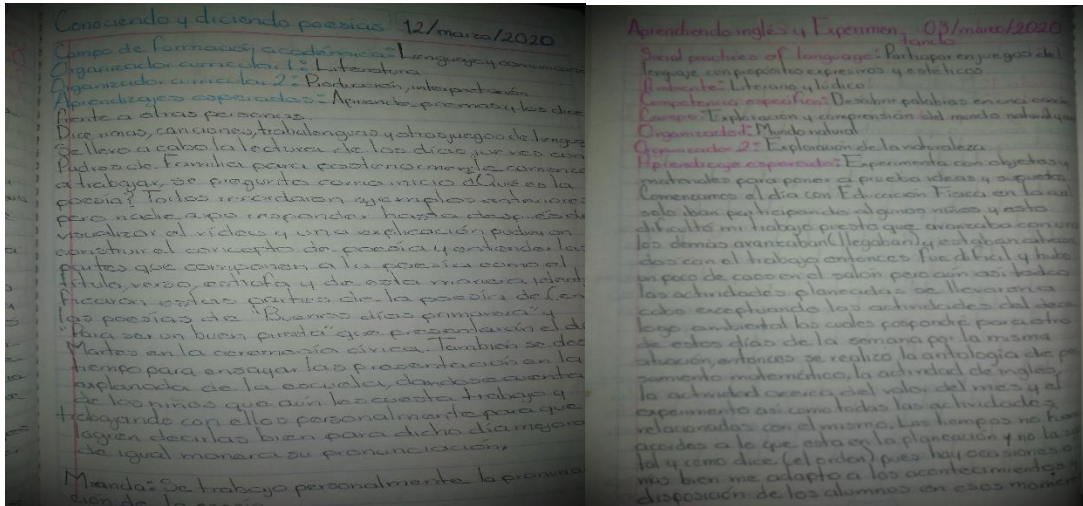 Conociendo y diciendo poesias 12/marzo/2020
Campo de formación académica: Lenguaje y comunicación
Organizador curricular 1: Literatura
Organizador curricular 2: Producción, interpretación
Aprendizajes esperados: Aprende poemas y los dice
frente a otras personas.
Dice rimas, canciones, trabalenguas y otros juegos de lengua
Se llevo a cabo la lectura de los días jueves con
Padres de Familia para posteriormente comenzar
a trabajar, se pregunto como inicio ¿Qué es la
poesia? Todos recordaron ejemplos anteriores
pero nadie supo responder hasta después de
visualizar el vídeo y una explicación pudieron
construir el concepto de poesía y entender las
partes que componen a la poesía como el
titulo, verso, estrofa y de esta manera identi
ficaron estas partes de la poesía de
las poesias de "Buenos días primavera" y
"Para ser un buen" que presentarán el día
Martes en la ceremonia cívica. También se dio
tiempo para ensayar las presentación en la
explanada de la escuela, dandose cuenta
de los niños que aún les cuesta trabajo y
trabajando con ellos personalmente para que
logren decirlas bien para dicho día mejora
de igual manera su pronunciación.
Miranda: Se trabajo personalmente la pronuncia
ción de la
Aprendiendo inglés y Experimen 03/marzo/2020
tando
Social practices of language: Participar en juegos del
lenguaje con propósitos expresivos y estéticos
Ambiente: Literario y lúdico
Competencia específica: Descubrir palabras en una canción
Campo: Exploración y comprensión del mundo natural y
Organizador 1: Mundo natural
Organizador 2: Exploración de la naturaleza
Aprendizaje esperado: Experimenta con objetos y
materiales para poner a prueba ideas y supuestos
Comenzamos el día con Educación Física en la cual
solo iban participando algunos niños y esto
dificulto mi trabajo puesto que avanzaba con unos
los demás avanzaban (llegaban) y estaban atrasa
dos con el trabajo entonces fue difícil y hubo
un poco de caos en el salón pero aún así todas
las actividades planeadas se llevaron a
cabo exceptuando las actividades del decá
logo ambiental las cuales pospondré para otro
de estos días de la semana por la misma
situación, entonces se realizo la antología de pen
samiento matemático, la actividad de ingles,
la actividad acerca del valor del mes y el
experimento así como todas las actividades
relacionadas con el mismo. Los tiempos no fueron
acordes a lo que esta en la planeación y no la
tal y como dice (el orden) pues hay ocasiones
más bien me adapto a los acontecimientos y
disposición de los alumnos en esos momen